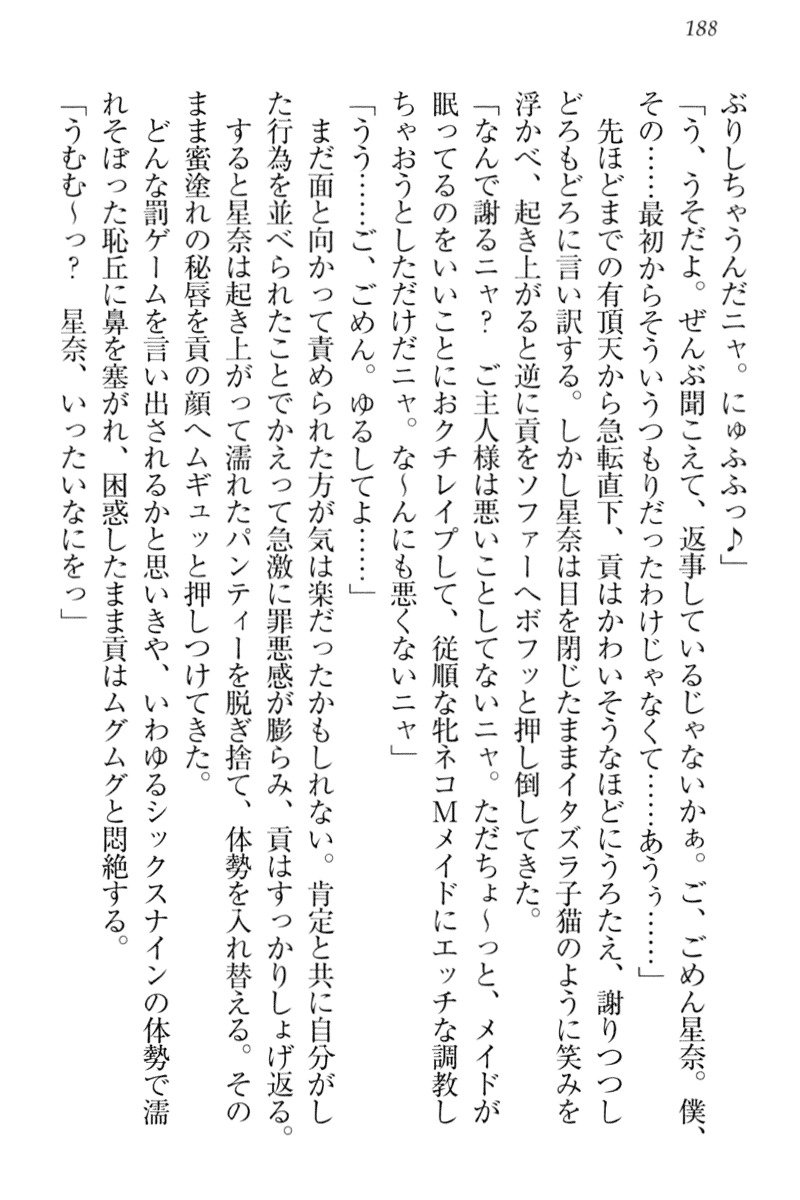 188
ぶりしちゃうんだニャ。にゅふふっ♪」
「う、うそだよ。ぜんぶ聞こえて、返事しているじゃないかぁ。ご、ごめん星奈。僕、
その……最初からそういうつもりだったわけじゃなくて……あうぅ……」
　先ほどまでの有頂天から急転直下、貢はかわいそうなほどにうろたえ、謝りつつし
どろもどろに言い訳する。しかし星奈は目を閉じたままイタズラ子猫のように笑みを
浮かべ、起き上がると逆に貢をソファーへボフッと押し倒してきた。
「なんで謝るニャ？　ご主人様は悪いことしてないニャ。ただちょ〜っと、メイドが
眠ってるのをいいことにおクチレイプして、従順な牝ネコＭメイドにエッチな調教し
ちゃおうとしただけだニャ。な〜んにも悪くないニャ」
「うう……ご、ごめん。ゆるしてよ……」
　まだ面と向かって責められた方が気は楽だったかもしれない。肯定と共に自分がし
た行為を並べられたことでかえって急激に罪悪感が膨らみ、貢はすっかりしょげ返る。
　すると星奈は起き上がって濡れたパンティーを脱ぎ捨て、体勢を入れ替える。その
まま蜜塗れの秘唇を貢の顔へムギュッと押しつけてきた。
　どんな罰ゲームを言い出されるかと思いきや、いわゆるシックスナインの体勢で濡
れそぼった恥丘に鼻を塞がれ、困惑したまま貢はムグムグと悶絶する。
「うむむ〜っ？　星奈、いったいなにをっ」